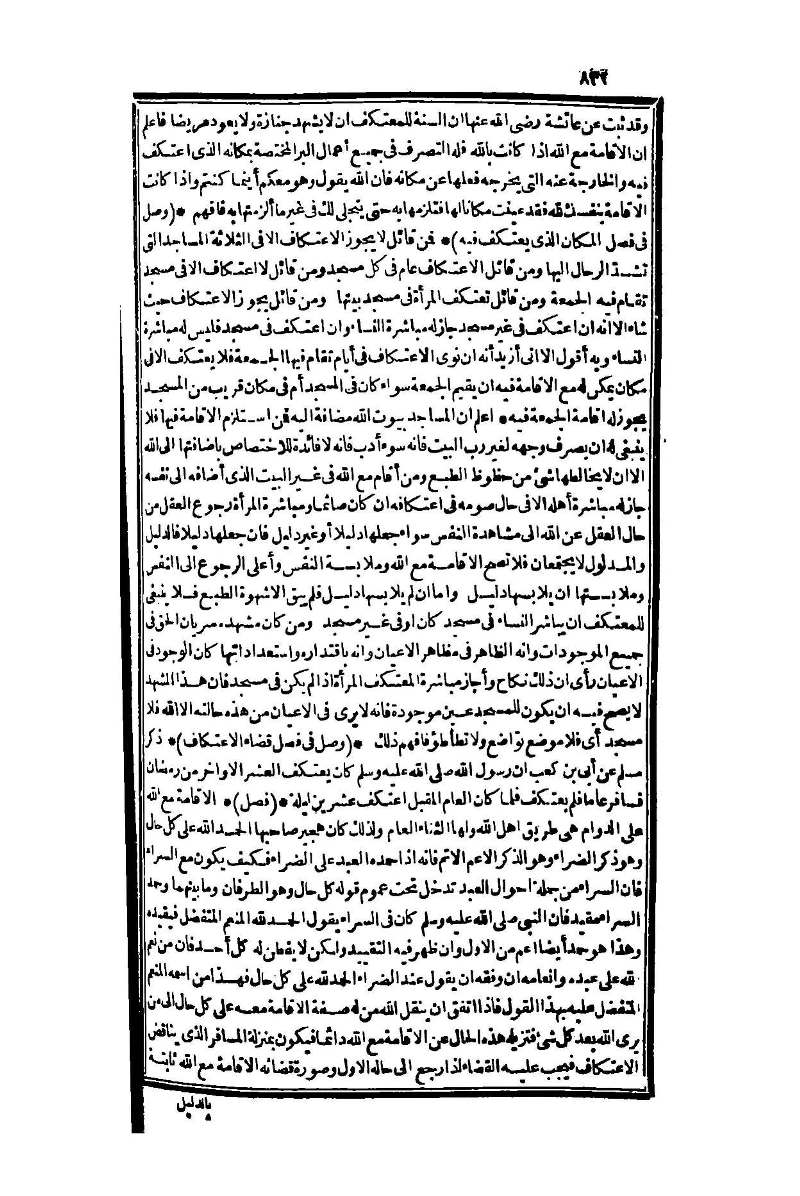 ٨٣٢
وقد ثبت عن عائشة رضى الله عنها ان السنة للمعتكف ان لا يشهد جنازة ولا يعود مريضا فاعلم
ان الاقامة مع الله اذا كانت بالله فله التصرف فى جميع أعمال البر المختصة بمكانه الذى اعتكف
فيه والخارجة عنه التى يخرجه فعلها عن مكانه فان الله يقول وهو معكم أينما كنتم واذا كانت
الاقامة بنفسك لله فقد عينت مكانا لها فتلزمها به حتى يتجلى لك فى غير ما ألزمتها به فافهم *(وصل
فى فصل المكان الذى يعتكف فيه)* فمن قائل لا يجوز الاعتكاف الا فى الثلاثة المساجد التى
تشد الرحال اليها ومن قائل الاعتكاف عام فى كل مسجد ومن قائل لا اعتكاف الا فى مسجد
تقام فيه الجمعة ومن قائل تعتكف المرأة فى مسجد بيتها ومن قائل يجوز الاعتكاف حيث
شاء الا انه ان اعتكف فى غير مسجد جاز له مباشرة النساء وان اعتكف فى مسجد فليس له مباشرة
النساء وبه أقول الا انى أزيد أنه ان نوى الاعتكاف فى أيام تقام فيها الجمعة فلا يعتكف الا فى
مكان يمكن له مع الاقامة فيه ان يقيم الجمعة سواء كان فى المسجد أم فى مكان قريب من المسجد
يجوز له اقامة الجمعة فيه* اعلم ان المساجد بيوت الله مضافة اليه فمن استلزم الاقامة فيها فلا
ينبغى له ان يصرف وجهه لغير رب البيت فانه سوء أدب فانه لا فائدة للاختصاص باضافتها الى الله
الا ان لا يخالطها شئ من حظوظ الطبع ومن أقام مع الله فى غير البيت الذى أضافه الى نفسه
جاز له مباشرة أهله الا فى حال صومه فى اعتكافه ان كان صائما ومباشرة المرأة رجوع العقل من
حال العقل عن الله الى مشاهدة النفس سواء جعلها دليلا أو غير دليل فان جعلها دليلا فالدليل
والمدلول لا يجتمعان فلا تصح الاقامة مع الله وملابسة النفس وأعلى الرجوع الى النفس
وملابستها ان يلابسها دليل واما ان لم يلابسها دليل فلم يبق الا شهوة الطبع فلا ينبغى
للمعتكف ان يباشر النساء فى مسجد كان او فى غير مسجد ومن كان مشهده سريان الحق فى
جميع الموجودات وانه الظاهر فى مظاهر الاعيان وانه باقتداره واستعداداتها كان الوجود فى
الاعيان رأى ان ذلك نكاح وأجاز مباشرة المعتكف المرأة اذا لم يكن فى مسجد فان هذا المشهد
لا يصح فيه ان يكون للمسجد عين موجودة فانه لا يرى فى الاعيان من هذه حالته الا الله فلا
مسجد أى فلا موضع تواضع ولا تطأطؤ فافهم ذلك *(وصل فى فصل قضاء الاعتكاف)* ذكر
مسلم عن أبى بن كعب ان رسول الله صلى الله عليه وسلم كان يعتكف العشر الاواخر من رمضان
فسافر عاما فلم يعتكف فلما كان العام المقبل اعتكف عشرين ليلة *(فصل)* الاقامة مع الله
على الدوام هى طريق اهل الله ولها الثناء العام ولذلك كان هجير صاحبها الحمد الله على كل حال
وهو ذكر الضراء وهو الذكر الاعم الاتم فانه اذا حمده العبد على الضراء فكيف يكون مع السراء
فان السراء من جملة احوال العبد تدخل تحت عموم قوله كل حال وهو الطرفان وما بينهما وحمد
السراء مقيد فان النبى صلى الله عليه وسلم كان فى السراء يقول الحمد لله المنعم المتفضل فيقيده
وهذا هو حمد أيضا اعم من الاول وان ظهر فيه التقييد ولكن لا يفطن له كل أحد فان من نعم
لله على عبده وانعامه ان وفقه ان يقول عند الضراء الحمد لله على كل حال فهذا من اسمه المنعم
المتفضل عليه بهذا القول فاذا اتفق ان ينقل الله من له صفة الاقامة معه على كل حال الى من
يرى الله بعد كل شئ فتزيله هذه الحال عن الاقامة مع الله دائما فيكون بمنزلة المسافر الذى يناقض
الاعتكاف فيجب عليه القضاء اذا رجع الى حاله الاول وصورة قضائه الاقامة مع الله ثابتة
بالدليل